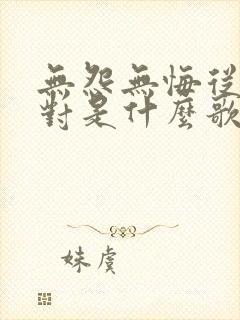 無怨無悔從
對是什麼歌
妹虞